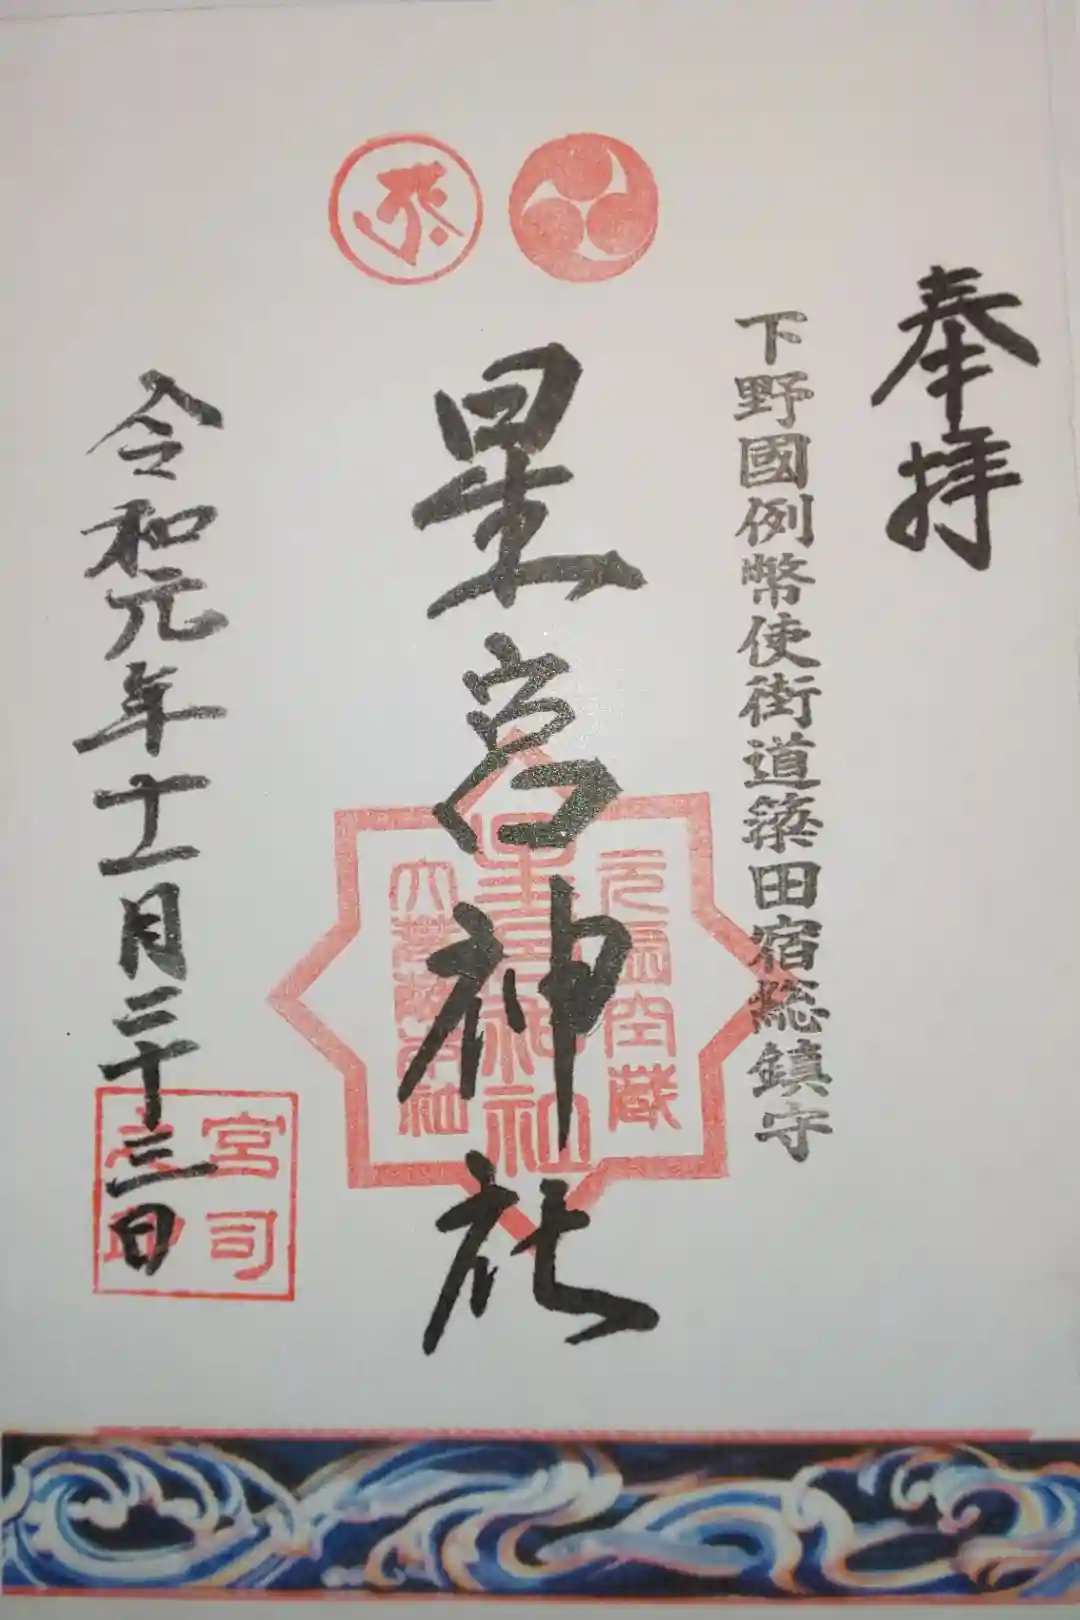 奉拝
下野國例幣使街道簗田宿総鎮守
元虚空蔵
星宮神社
星宮神社
令和元年十一月二十三日
宮司